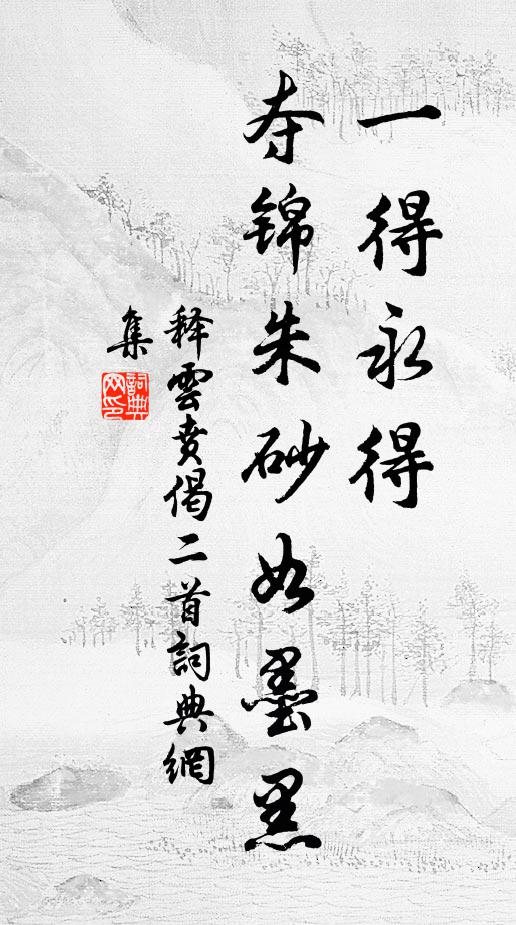 一得永得
夺锦朱砂如墨黑
释雲贲偈二首詞典網
集
詞典
网印